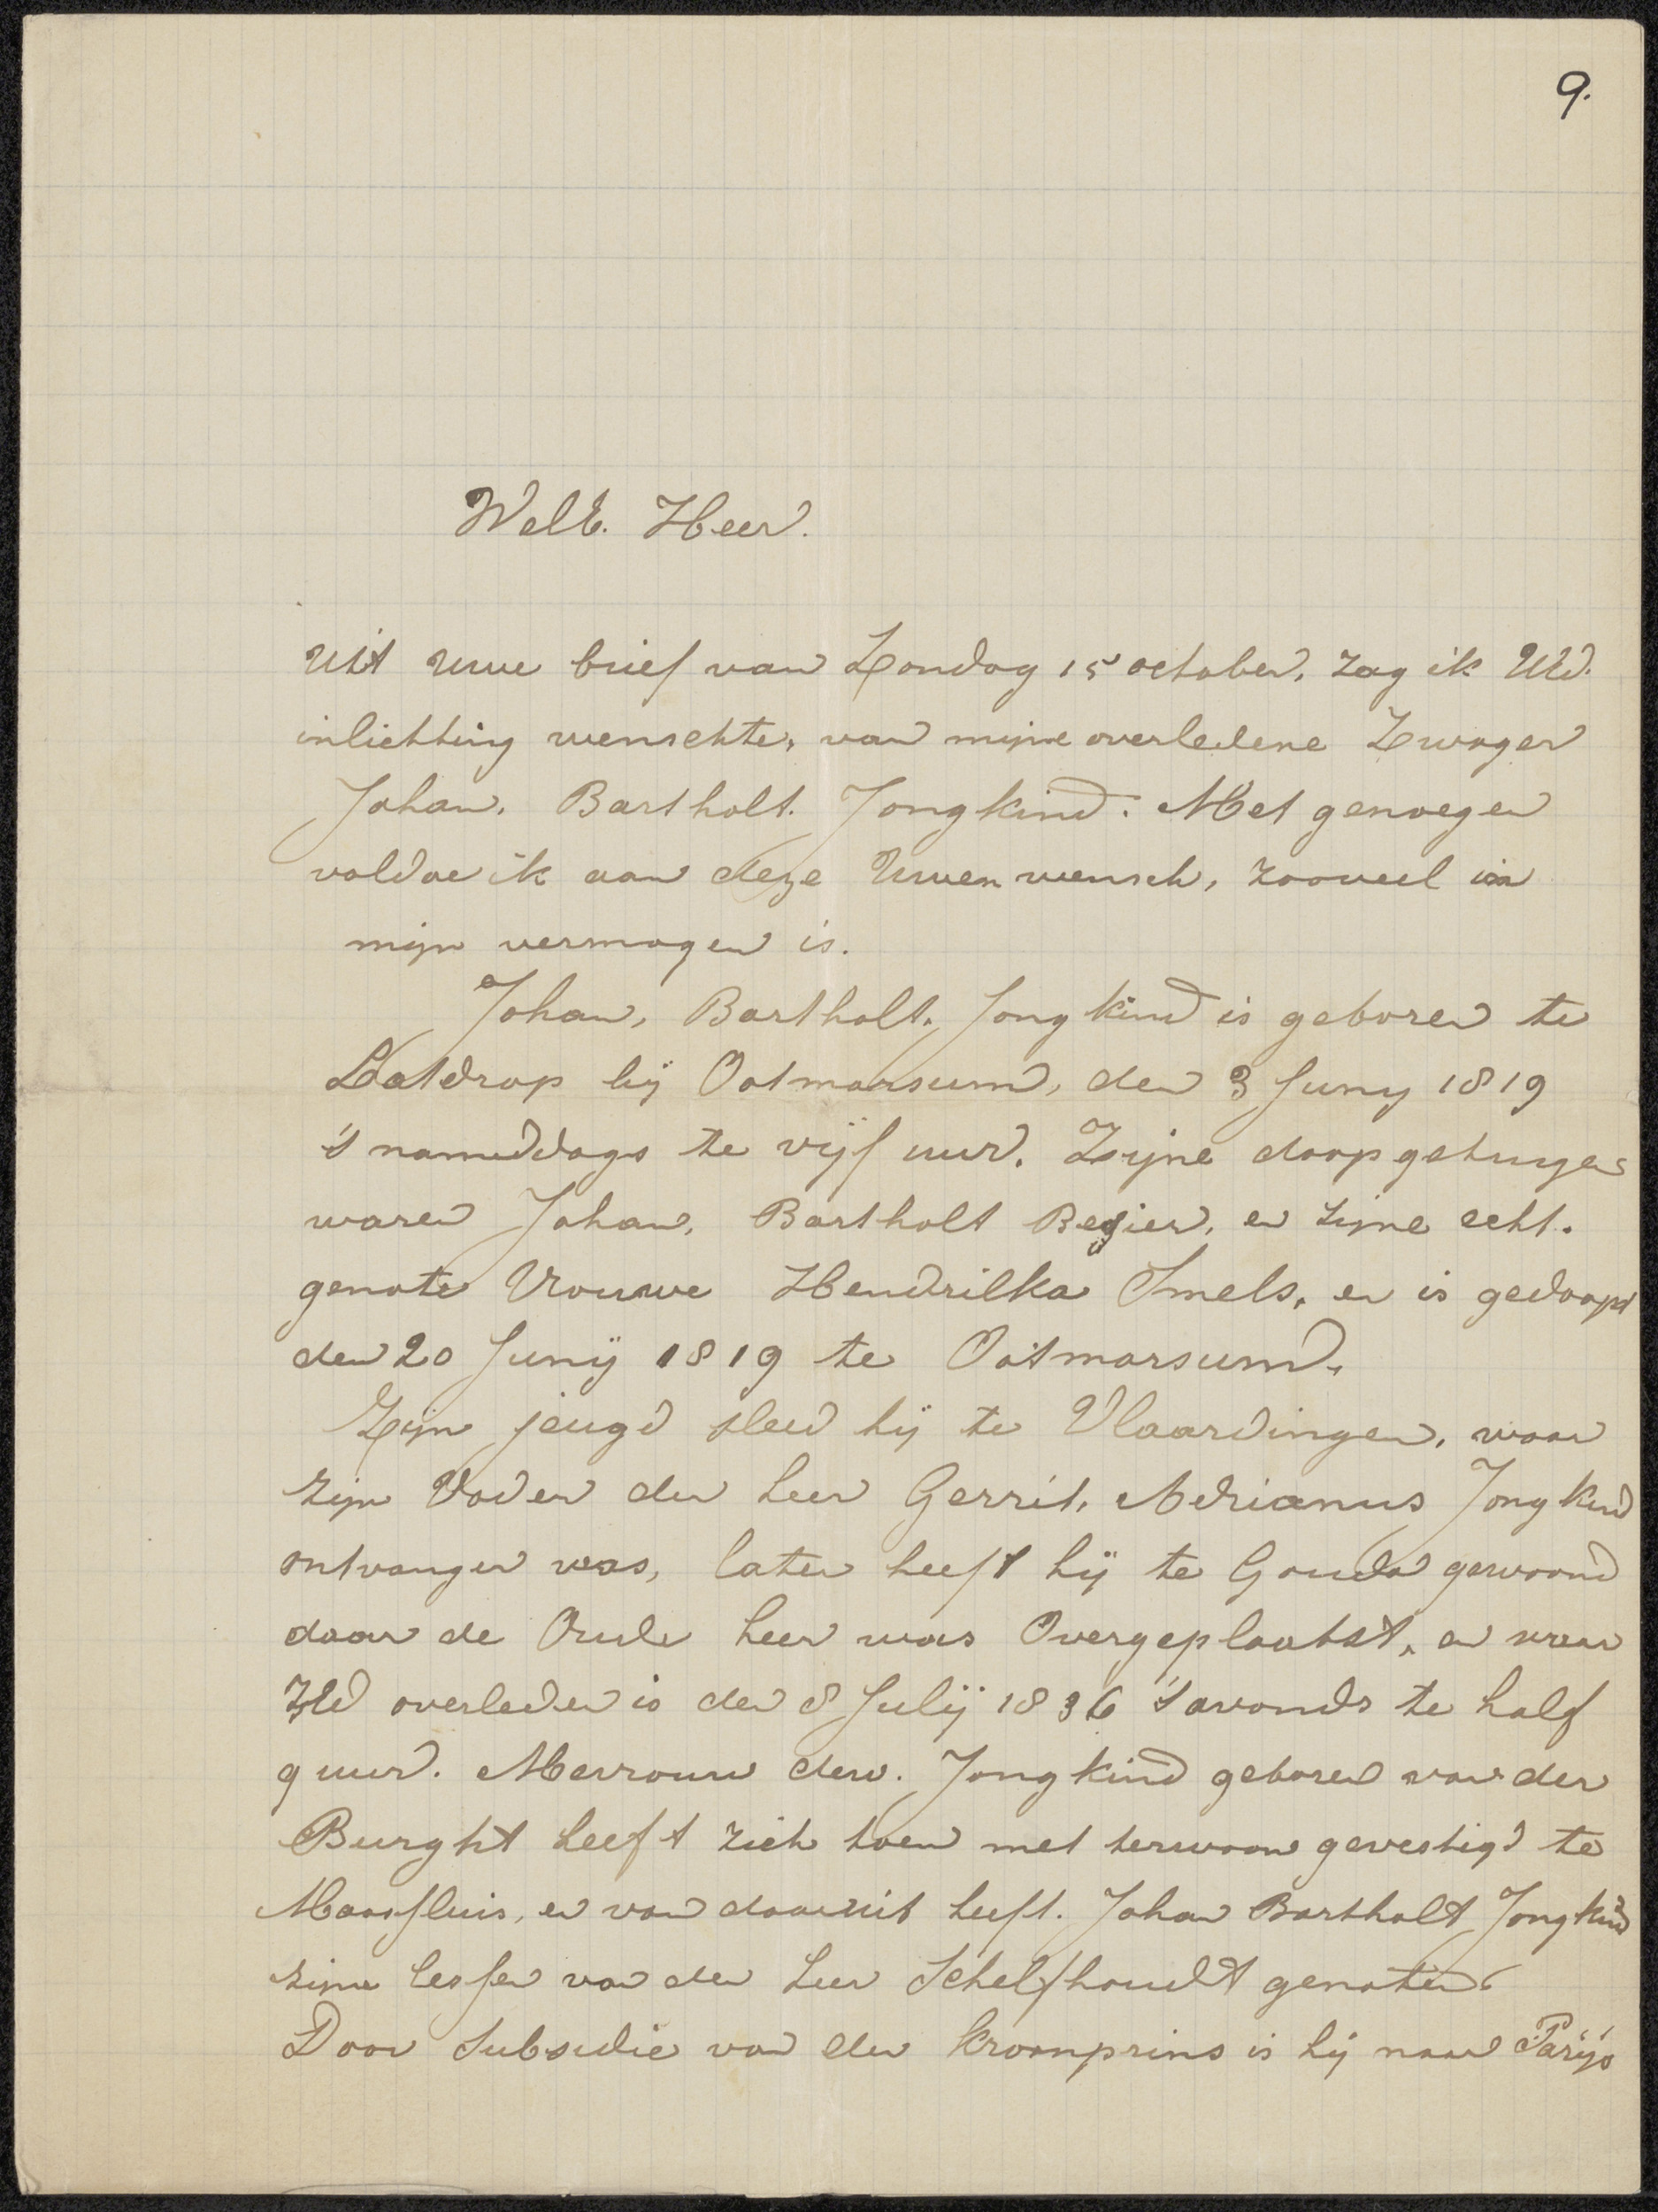 9.
WelE. Heer.
Uit Uwe brief van Zondag 15 october, zag ik UEd.
inlichting wenschte, van mijne overledene Zwager
Johan. Bartholt. Jongkind. Met genoegen
voldoe ik aan deze Uwen wensch, zooveel in
mijn vermogen is.
Johan, Bartholt. Jongkind is geboren te
Latdrop bij Ootmarsum, den 3 Juny 1819
's nameddags te vijf uur. Zijne doopgetuigen
waren Johan, Bartholt Begier, en zijne echt.
genote Vrouwe Hendrilka Smels, en is gedoopt
den 20 Junij 1819 te Ootmarsum.
Zijn jeugd sleed hij te Vlaardingen, waar
zijn Vader den heer Gerrit, Adrianus Jongkind
ontvanger was, later heeft hij te Gouda gewoond
daar de Oude heer was Overgeplaatst, en waar
ZEd overleden is den 8 Julij 1836 's avonds te half
9 uur. Mevrouw dew. Jongkind geboren van der
Burght heeft zich toen met terwoon gevestigd te
Maassluis, en van daaruit heeft. Johan Bartholt Jongkind
zijne lessen van den heer Schelfhoudt genoten.
Door Subsidie van den Kroonprins is hij naar Parijs